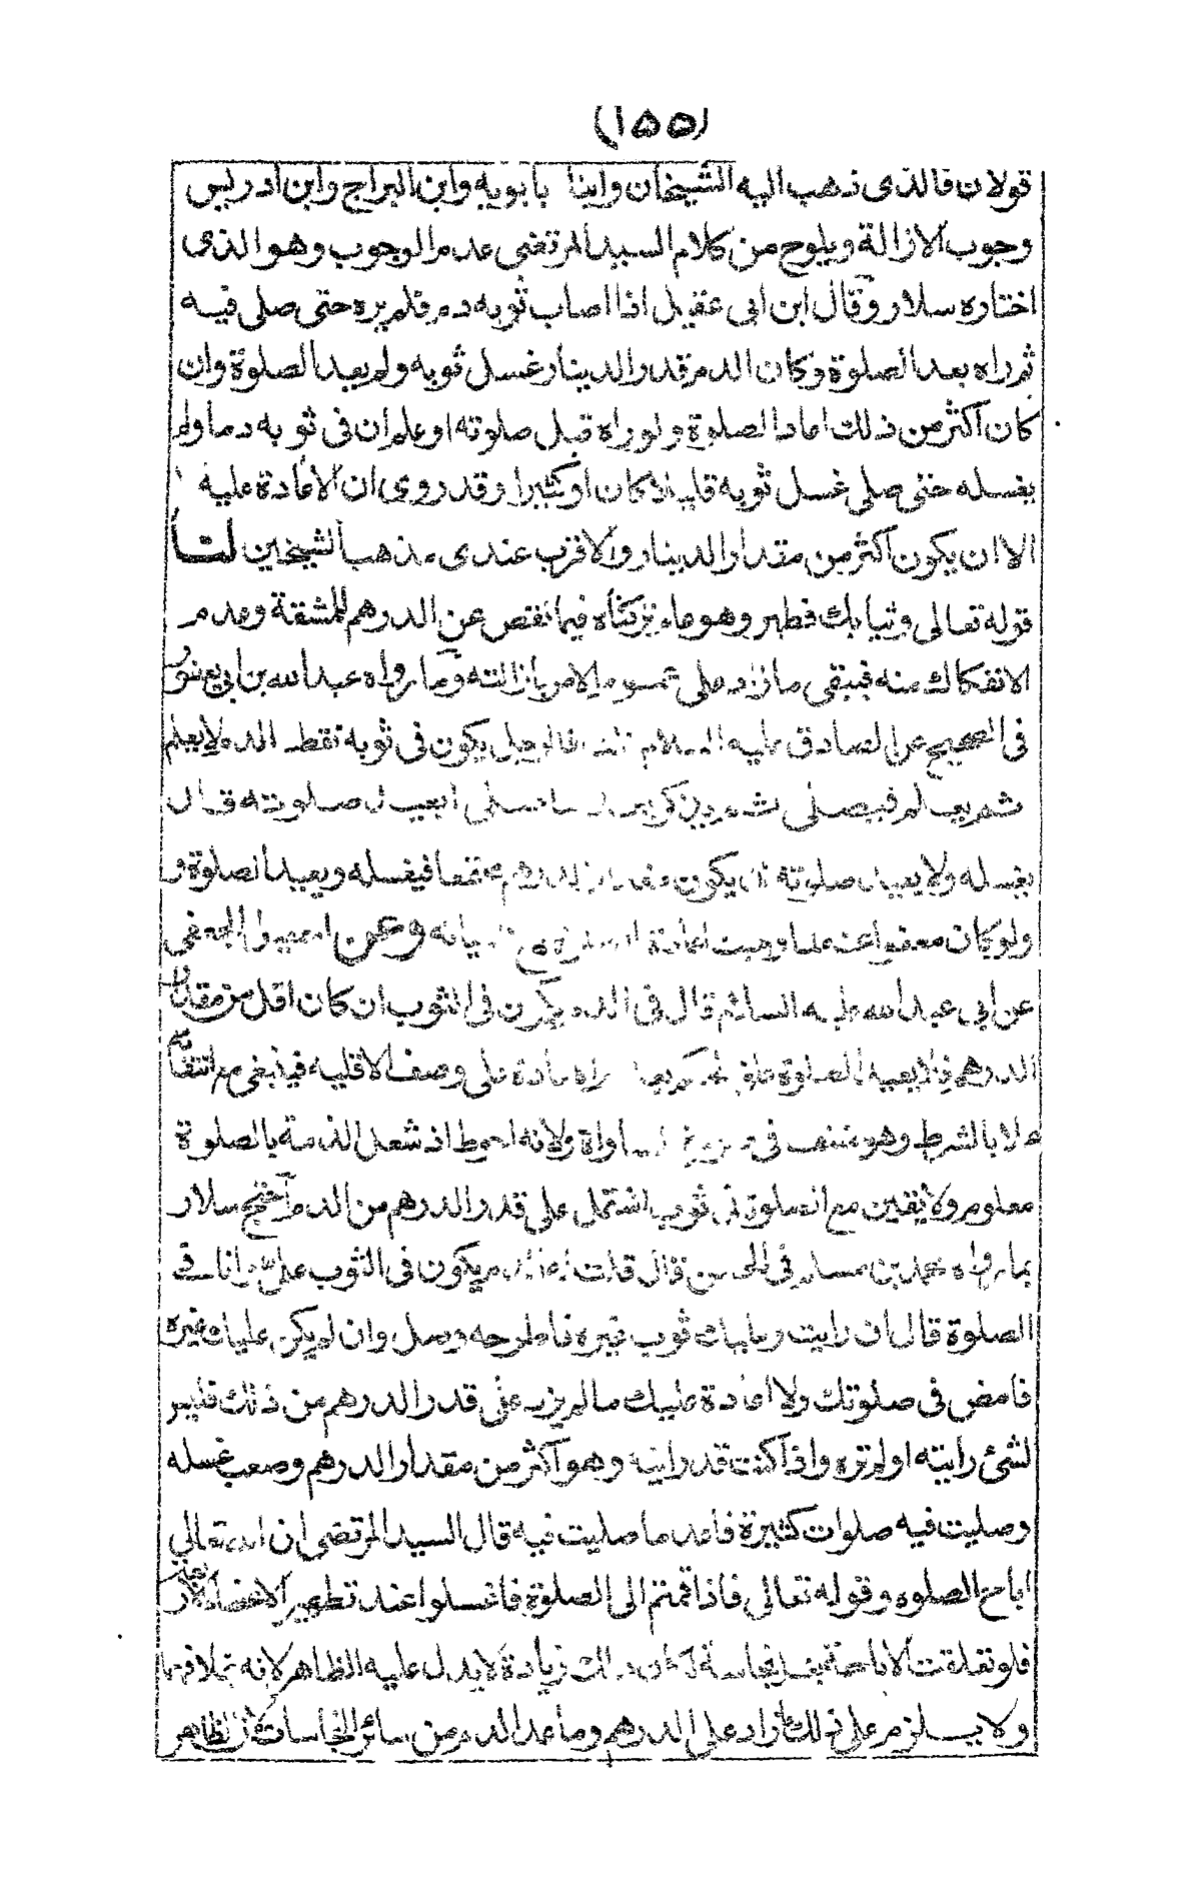 (١٥٥)
قولان فالذى ذهب اليه الشيخان وابنا بابويه وابن البراج وابن ادريس
وجوب الازالة ويلوح من كلام السيد المرتضى عدم الوجوب وهو الذى
اختاره سلار وقال ابن ابى عقيل اذا اصاب ثوبه دم فلم يره حتى صلى فيه
ثم راه بعد الصلوة وكان الدم قدر الدينار غسل ثوبه ولم يعد الصلوة وان
كان اكثر من ذلك اعاد الصلوة ولو راه قبل صلوته او علم ان فى ثوبه دما ولم
يغسله حتى صلى غسل ثوبه قليلا كان او كثيرا وقد روى ان لا اعادة عليه
الا ان يكون اكثر من مقدار الدينار والاقرب عندى مذهب الشيخين لنا
قوله تعالى وثيابك فطهر وهو عام تركناه فيما نقص عن الدرهم للمشقة وعدم
الانفكاك منه فيبقى ما زاد على عموم الامر بازالته وما رواه عبد الله بن ابى يعفور
فى الصحيح عن الصادق عليه السلام قال الرجل يكون فى ثوبه نقط الدم لا يعلم
ثم يعلم فيصلى صلوته قال
يغسله ولا يعيد صلوته ان يكون مقدار الدرهم مجتمعا فيغسله ويعيد الصلوة و
ولو كان معفوا عنه لما وجبت اعادة وعن اسمعيل الجعفى
عن ابى عبد الله عليه السلام قال فى الدم يكون فى الثوب ان كان اقل من مقدار
الدرهم فلا يعيد الصلوة على وصف الاقلية فينبغى مع انتفائه
بالشرط وهو منتف فى المساواة ولانه احوط اذ شغل الذمة بالصلوة
معلوم ولا يقين مع الصلوة فى ثوب اشتمل على قدر الدرهم من الدم احتج سلار
بما رواه محمد بن مسلم فى الحسن قال قلت الدم يكون فى الثوب على وانا فى
الصلوة قال ان رايت وعليك ثوب غيره فاطرحه وصل وان لم يكن عليك غيره
فامض فى صلوتك ولا اعادة عليك ما لم يزد على قدر الدرهم من ذلك فليس
لشئ رايته او لم تره واذا كنت قد رايته وهو اكثر من مقدار الدرهم وضيعت غسله
وصليت فيه صلوات كثيرة فاعد ما صليت فيه قال السيد المرتضى ان الله تعالى
اباح الصلوه وقوله تعالى فاذا قمتم الى الصلوة فاغسلوا عند تطهير الاعضاء الاربعة
فلو تعلقت الاباحة بغسل نجاسة لكان ذلك زيادة لا يدل عليه الظاهر لانه بخلافها
ولا يلزم على ذلك ما زاد على الدرهم وما عدا الدم من سائر النجاسات لان الظاهر